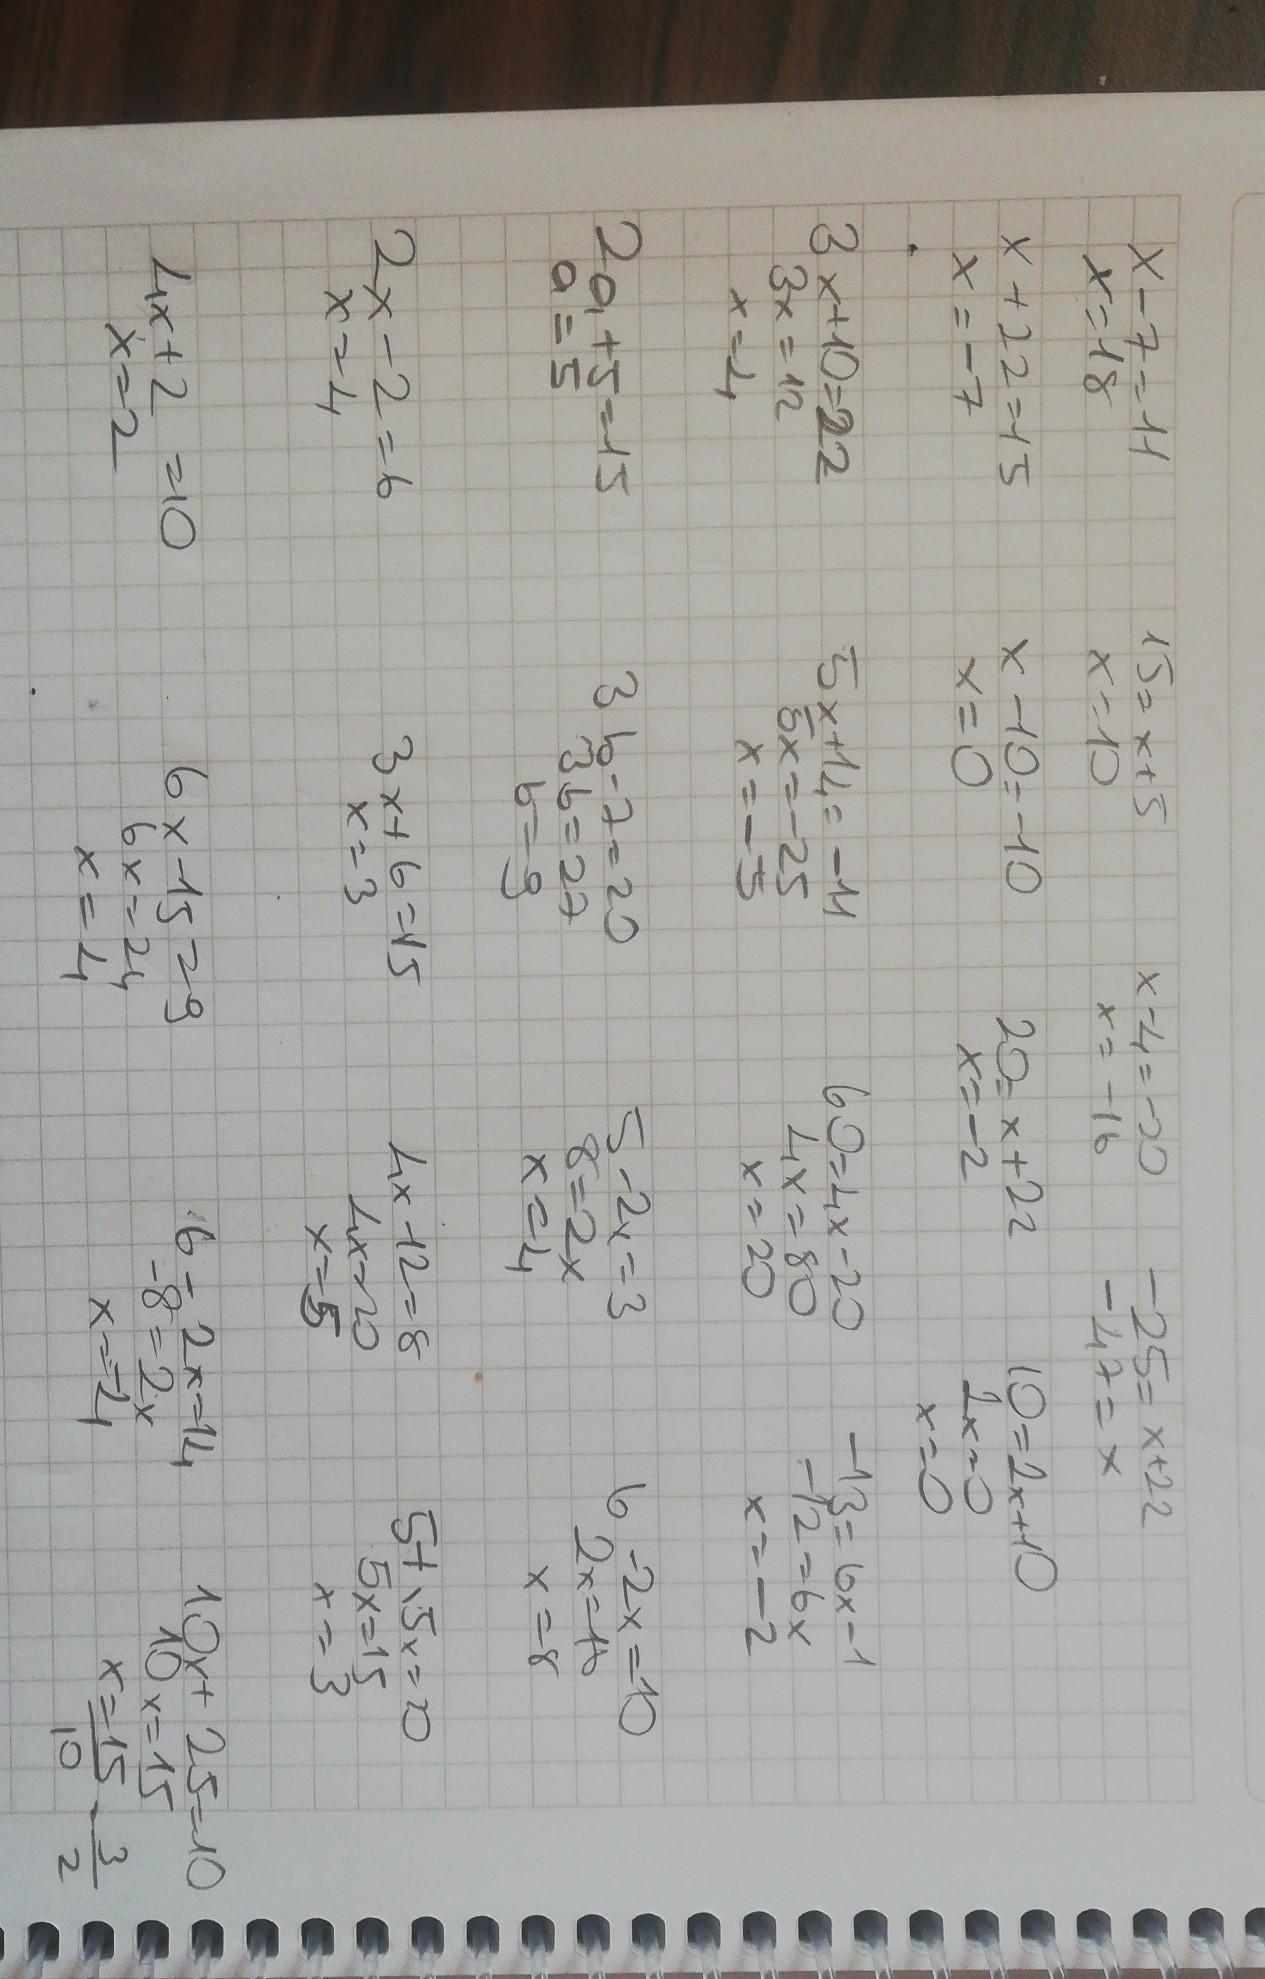 x-7=11 15=x+5 x-4=-20 -25=x+22
x=18 x=10 x=-16 -47=x
x+22=15 x-10=-10 20=x+22 10=2x+10
x=-7 x=0 x=-2 2x=0
x=0
3x+10=22 5x+14=-11 60=4x-20 -13=6x-1
3x=12 5x=-25 4x=80 -12=6x
x=4 x=-5 x=20 x=-2
2a+5=15 3b-7=20 5-2x=3 6-2x=10
a=5 3b=27 8=2x 2x=16
b=9 x=4 x=8
2x-2=6 3x+6=15 4x-12=8 5+5x=20
x=4 x=3 4x=20 5x=15
x=5 x=3
4x+2=10 6x-15=9 6-2x=14 10x+25=10
x=2 6x=24 -8=2x 10x=15
x=4 x=-4 x=15/10 -3/2